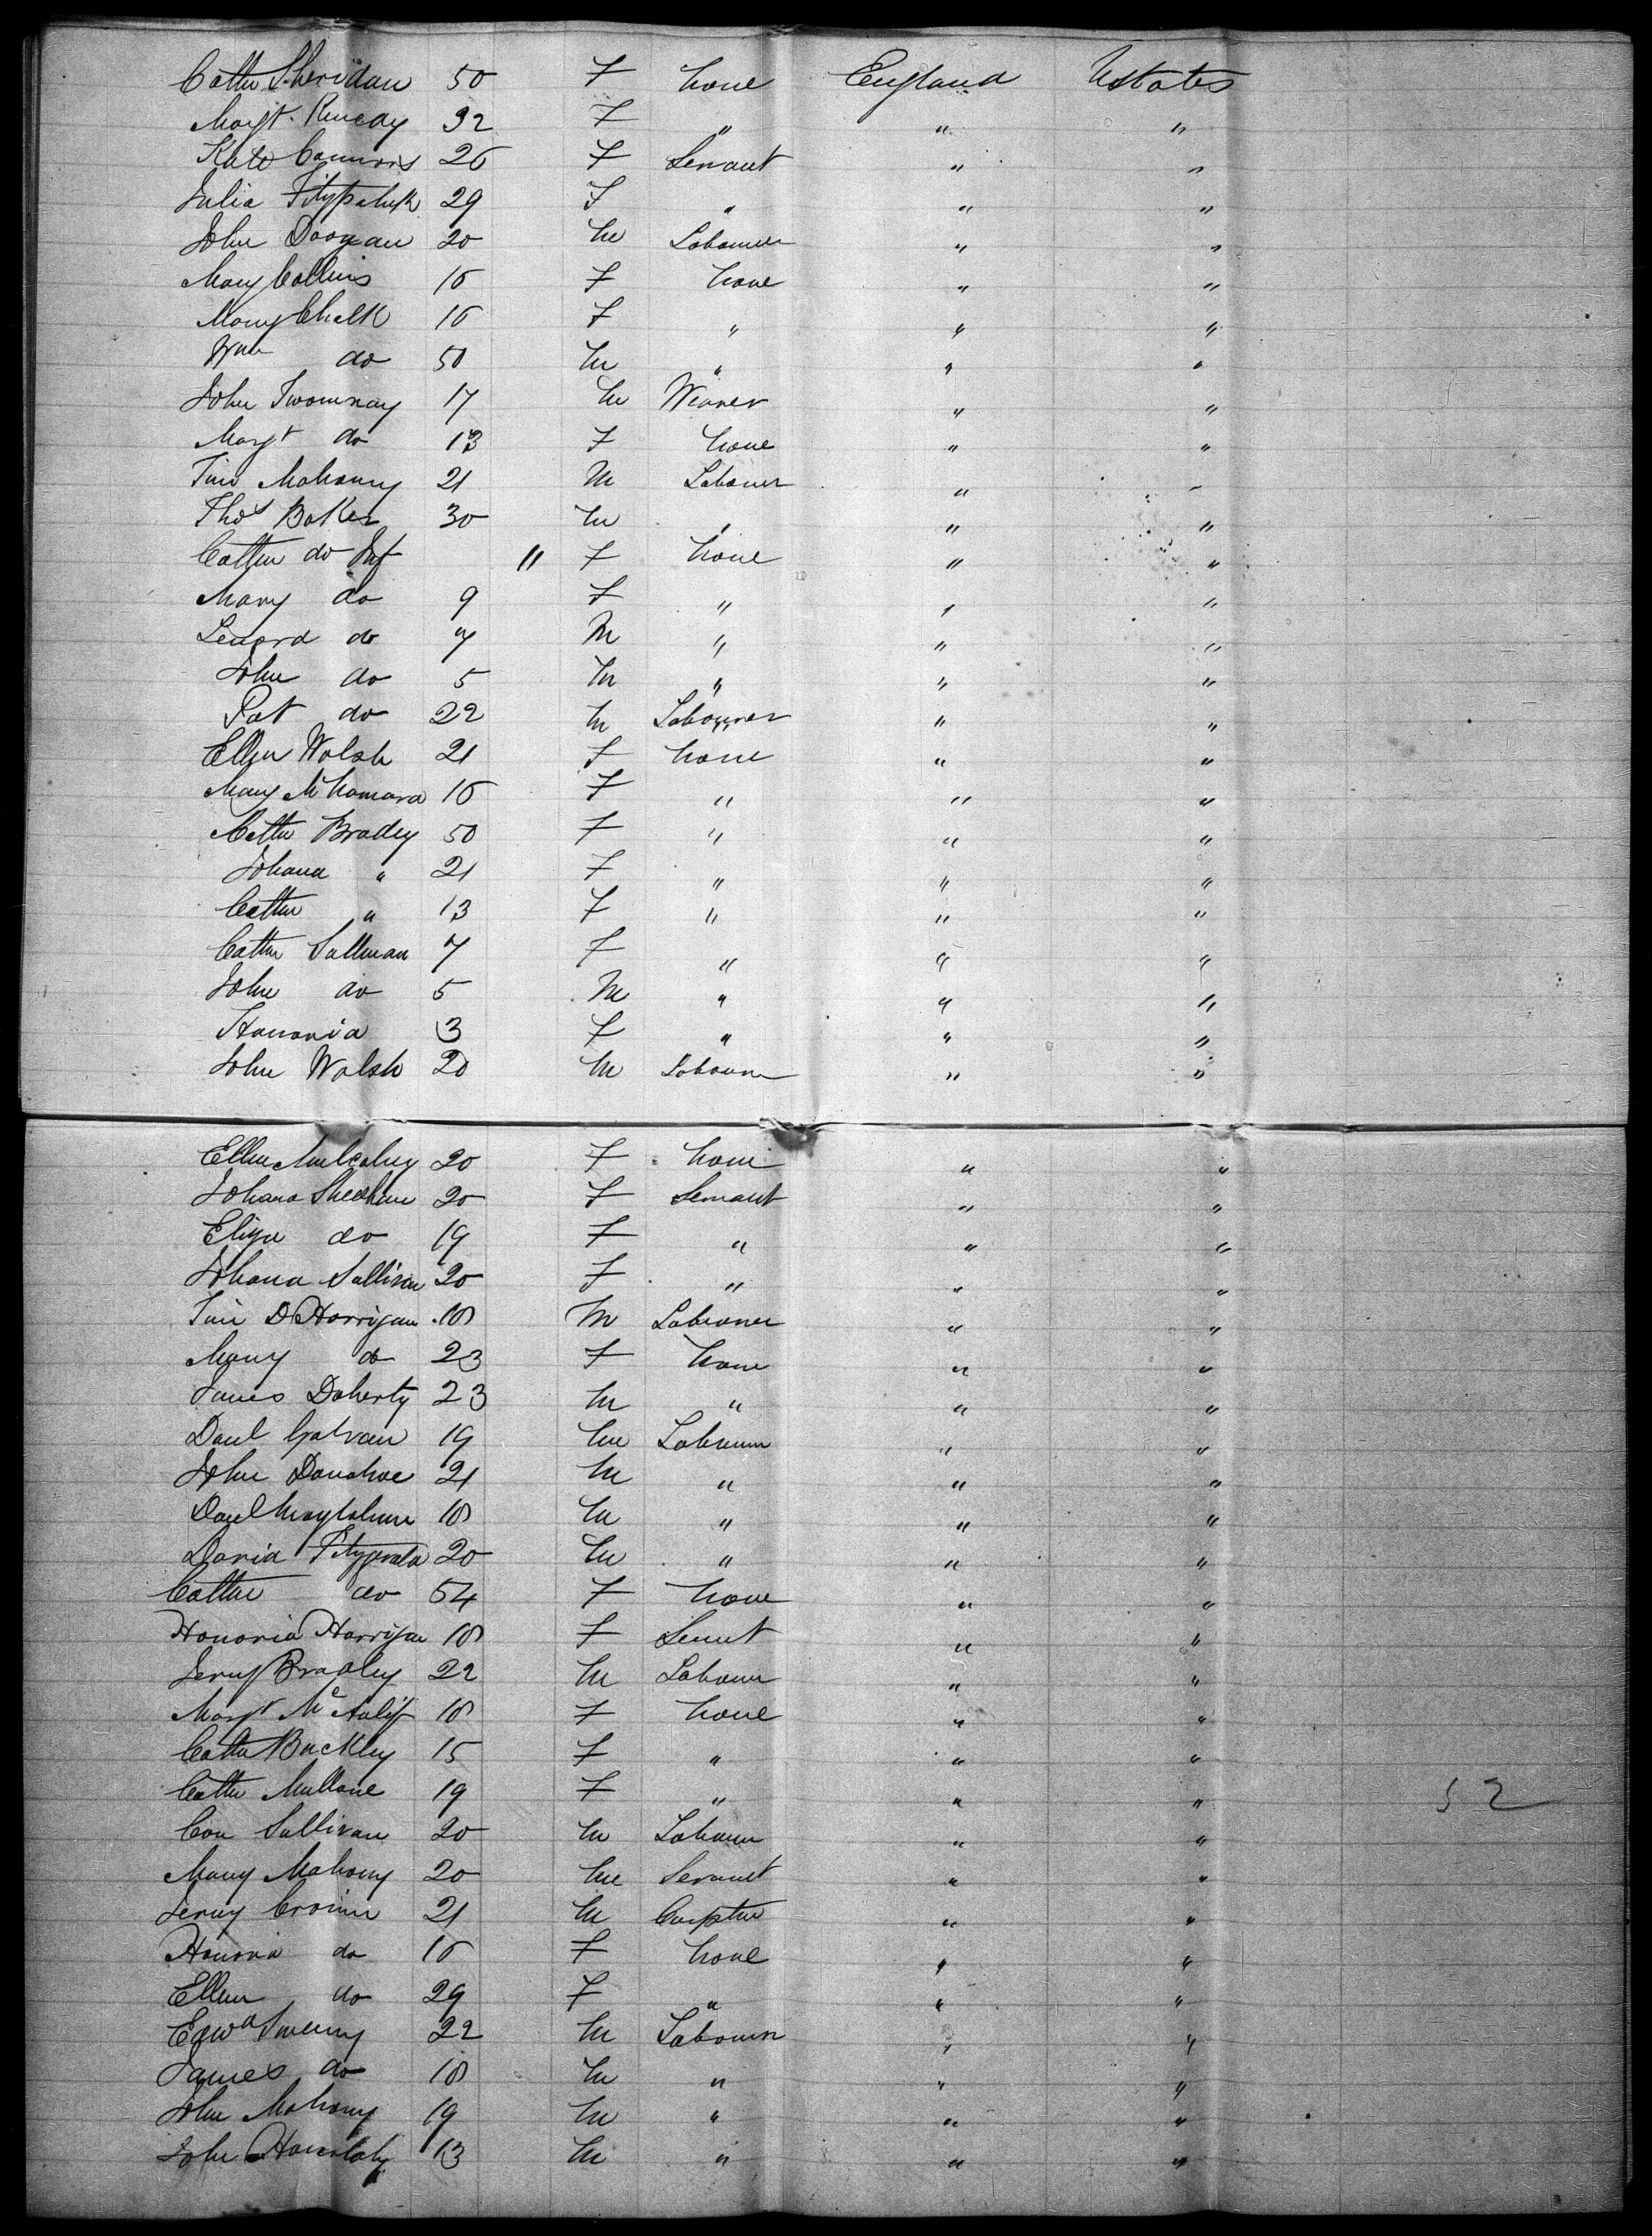 Cathe Sheridan 50 F None England UStates
Margt. 32 F " " "
Kate Connors 26 F Servant " "
Julia Fitzpatrick 29 F " " "
John Doogan 20 M Labourer " "
Mary Collins 16 F None " "
Mary Chalk 16 F " " "
Wm do 50 M " " "
John Twomnay 17 M Weaver " "
Margt do 13 F None " "
Tim Mahony 21 M Labourer " "
Thos Baker 30 M " " "
Cathe do Inf 11 F None " "
Mary do 9 F " " "
Lenard do 7 M " " "
John do 5 M " " "
Pat do 22 M Labourer " "
Ellen Walsh 21 F None " "
Mary McNamara 16 F " " "
Cathe Bradey 50 F " " "
Johana " 21 F " " "
Cathe " 13 F " " "
Cathe 7 F " " "
John do 5 M " " "
Honoria 3 F " " "
John Walsh 20 M Labourer " "
Ellen Mulcahy 20 F None " "
Johana Sheehan 20 F Servant " "
Eliza do 19 F " " "
Johana Sullivan 20 F " " "
Tim 18 M Labourer " "
Mary do 23 F None " "
James Doherty 23 M " " "
Danl Galvan 19 M Labourer " "
John Donahoe 21 M " " "
Danl 18 M " " "
David Fitzgerald 20 M " " "
Cathe do 54 F None " "
Honoria Harrigan 18 F Servnt " "
Jerry Bradley 22 M Labour " "
Margt McAulif 18 F None " "
Cathe Buckley 15 F " " "
Cathe Mullane 19 F " " " 52
Con Sullivan 20 M Labourer " "
Mary Mahony 20 M Servant " "
Jerry Cronin 21 M Carptnr " "
Honora do 16 F None " "
Ellen do 29 F " " "
Edwd Sweeny 22 M Labourer " "
James do 18 M " " "
John Mahony 19 M " " "
John 13 M " " "